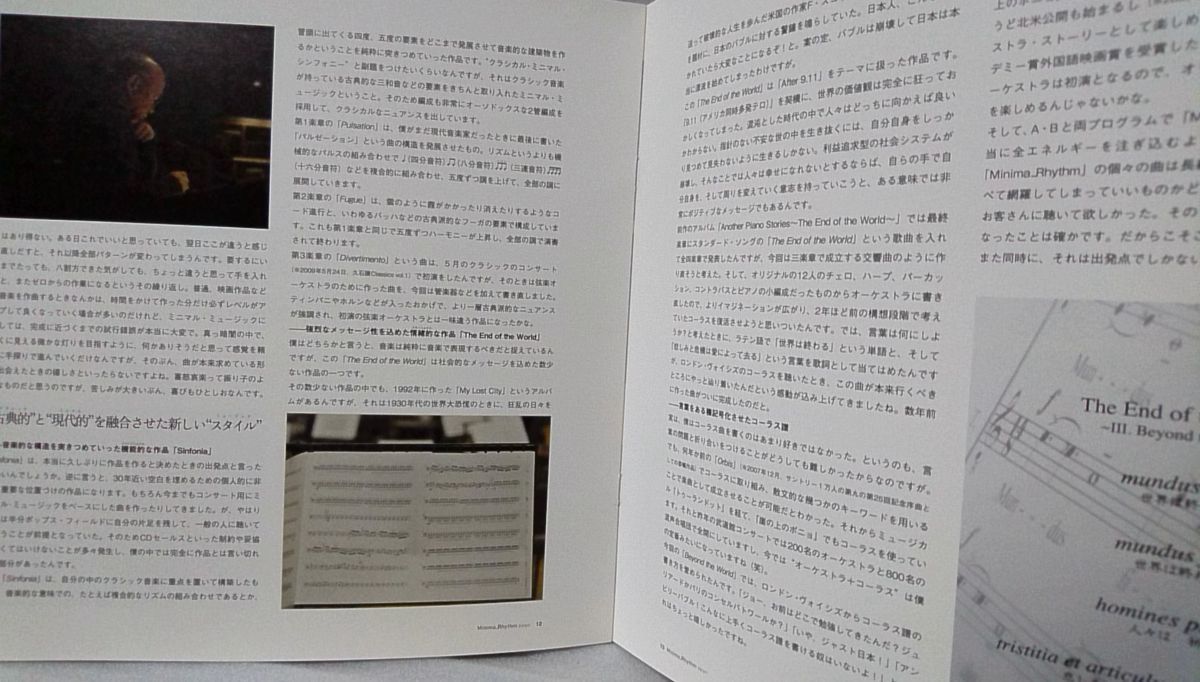 はあり得ない。ある日これでいいと思っていても、翌日ここが違うと感じ
直しだすと、それ以降全部パターンが変わってしまうんです。要するにい
までたっても、八割方できた気がしても、ちょっと違うと思って手を入れ
と、またゼロからの作業になるというその繰り返し。普通、映画作品など
音楽を作曲するときなんかは、時間をかけて作った分だけ必ずレベルがア
プして良くなっていく場合が多いのだけれど、ミニマル・ミュージックに
しては、完成に近づくまでの試行錯誤が本当に大変で。真っ暗闇の中で、
くに見える微かな灯りを目指すように、何かありそうだと思って感覚を頼
に手探りで進んでいくだけなんですが、そのぶん、曲が本来求めている形
出会えたときの嬉しさといったらないですよね。喜怒哀楽って振り子のよ
なものだと思うのですが、苦しみが大きいぶん、喜びもひとしおなんです。
古典的”と“現代的”を融合させた新しい“スタイル”
音楽的な構造を突きつめていった機能的な作品「Sinfonia」
nfonia」は、本当に久しぶりに作品を作ると決めたときの出発点と言った
いんでしょうか。逆に言うと、30年近い空白を埋めるための個人的に非
重要な位置づけの作品になります。もちろん今までもコンサート用にミ
ル・ミュージックをベースにした曲を作ったりしてきました。が、やはり
は半分ポップス・フィールドに自分の片足を残して、一般の人に聴いて
うことが前提となっていた。そのためCDセールスといった制約や妥協
くてはいけないことが多々発生し、僕の中では完全に作品とは言い切れ
部分があったんです。
「Sinfonia」は、自分の中のクラシック音楽に重点を置いて構築したも
音楽的な意味での、たとえば複合的なリズムの組み合わせであるとか、
冒頭に出てくる四度、五度の要素をどこまで発展させて音楽的な建築物を作
るかということを純粋に突きつめていった作品です。“クラシカル・ミニマル・
シンフォニー”と副題をつけたいくらいなんですが、それはクラシック音楽
が持っている古典的な三和音などの要素をきちんと取り入れたミニマル・ミ
ュージックということ。そのため編成も非常にオーソドックスな2管編成を
採用して、クラシカルなニュアンスを出しています。
第1楽章の「Pulsation」は、僕がまだ現代音楽家だったときに最後に書いた
「パルゼーション」という曲の構造を発展させたもの。リズムというよりも機
械的なパルスの組み合わせで♩(四分音符)♫(八分音符)(三連音符)
(十六分音符)などを複合的に組み合わせ、五度ずつ調を上げて、全部の調に
展開していきます。
第2楽章の「Fugue」は、雲のように霞がかかったり消えたりするようなコ
ード進行と、いわゆるバッハなどの古典派的なフーガの要素で構成していま
す。これも第1楽章と同じで五度ずつハーモニーが上昇し、全部の調で演奏
されて終わります。
第3楽章の「Divertimento」という曲は、5月のクラシックのコンサート
(※2009年5月24日、久石譲Classics vol.1)で初演をしたんですが、そのときは弦楽オ
ーケストラのために作った曲を、今回は管楽器などを加えて書き直しました。
ティンパニやホルンなどが入ったおかげで、より一層古典派的なニュアンス
が強調され、初演の弦楽オーケストラとは一味違う作品になったかな。
——強烈なメッセージ性を込めた情緒的な作品「The End of the World」
僕はどちらかと言うと、音楽は純粋に音楽で表現するべきだと捉えているん
ですが、この「The End of the World」は社会的なメッセージを込めた数少
ない作品の一つです。
その数少ない作品の中でも、1992年に作った「My Lost City」というアルバ
ムがあるんですが、それは1930年代の世界大恐慌のときに、狂乱の日々を
Minima_Rhythm 12
送って破壊的な人生を歩んだ米国の作家F・ス
を題材に、日本のバブルに対する警鐘を鳴らしていた。日本人、
かれていたら大変なことになるぞ！と。案の定、バブルは崩壊して日本は本
当に漂流を始めてしまったわけですが。
この「The End of the World」は「After 9.11」をテーマに扱った作品です。
「9.11(アメリカ同時多発テロ)」を契機に、世界の価値観は完全に狂ってお
かしくなってしまった。混沌とした時代の中で人々はどっちに向かえば良い
かわからない。指針のない不安な世の中を生き抜くには、自分自身をしっか
り見つめて見失わないように生きるしかない。利益追求型の社会システムが
崩壊し、そんなことでは人々は幸せになれないとするならば、自らの手で自
分自身を、そして周りを変えていく意志を持っていこうと、ある意味では非
常にポジティブなメッセージでもあるんです。
前作のアルバム「Another Piano Stories～The End of the World～」では最終
楽章にスタンダード・ソングの「The End of the World」という歌曲を入れ
て全四楽章で発表したんですが、今回は三楽章で成立する交響曲のように作
り直そうと考えた。そして、オリジナルの12人のチェロ、ハープ、パーカッ
ション、コントラバスとピアノの小編成だったものからオーケストラに書き
直したので、よりイマジネーションが広がり、2年ほど前の構想段階で考え
ていたコーラスを復活させようと思いついたんです。では、言葉は何にしよ
うか？と考えたときに、ラテン語で「世界は終わる」という単語と、そして
「悲しみと危機は愛によって去る」という言葉を歌詞として当てはめたんです
が、ロンドン・ヴォイシズのコーラスを聴いたとき、この曲が本来行くべき
ところにやっと辿り着いたんだという感動が込み上げてきましたね。数年前
に作った曲がついに完成したのだと。
——言葉をある種記号化させたコーラス譜
実は、僕はコーラス曲を書くのはあまり好きではなかった。というのも、言
葉の問題と折り合いをつけることがどうしても難しかったからなのですが。
でも、何年か前の「Orbis」(※2007年12月、サントリー1万人の第九の第25回記念序曲と
しての参考作品)でコーラスに取り組み、散文的な幾つかのキーワードを用いる
ことで楽曲として成立させることが可能だとわかった。それからミュージカ
ル「トゥーランドット」を経て、「崖の上のポニョ」でもコーラスを使ってい
ます。それと昨年の武道館コンサートでは200名のオーケストラと800名の
混声合唱団で全開にしていますし、今では“オーケストラ＋コーラス”は僕
の定番みたいになっていますね(笑)。
今回の「Beyond the World」では、ロンドン・ヴォイシズからコーラス譜の
書き方を誉められたんです。「ジョー、お前はどこで勉強してきたんだ？ジュ
リアードかパリのコンセルバトワールか？」「いや、ジャスト日本！」「アン
ビリーバブル！こんなに上手くコーラス譜を書ける奴はいないよ！」
れはちょっと嬉しかったですね。
13 Minima_Rhythm
上のホ
うど北米公開も始まるし
ストラ・ストーリーとして楽しめ
デミー賞外国語映画賞を受賞した
ーケストラは初演となるので、オ
を楽しめるんじゃないかな。
そして、A・Bと両プログラムで「M
当に全エネルギーを注ぎ込むよ
「Minima_Rhythm」の個々の曲は長
べて網羅してしまっていいものかと
お客さんに聴いて欲しかった。その
なったことは確かです。だからこそこ
また同時に、それは出発点でしかない
The End of
~III. Beyond
mundus
世界は終
mundus
世界は終
homines p
人々は
tristitia et articulu
悲しみ